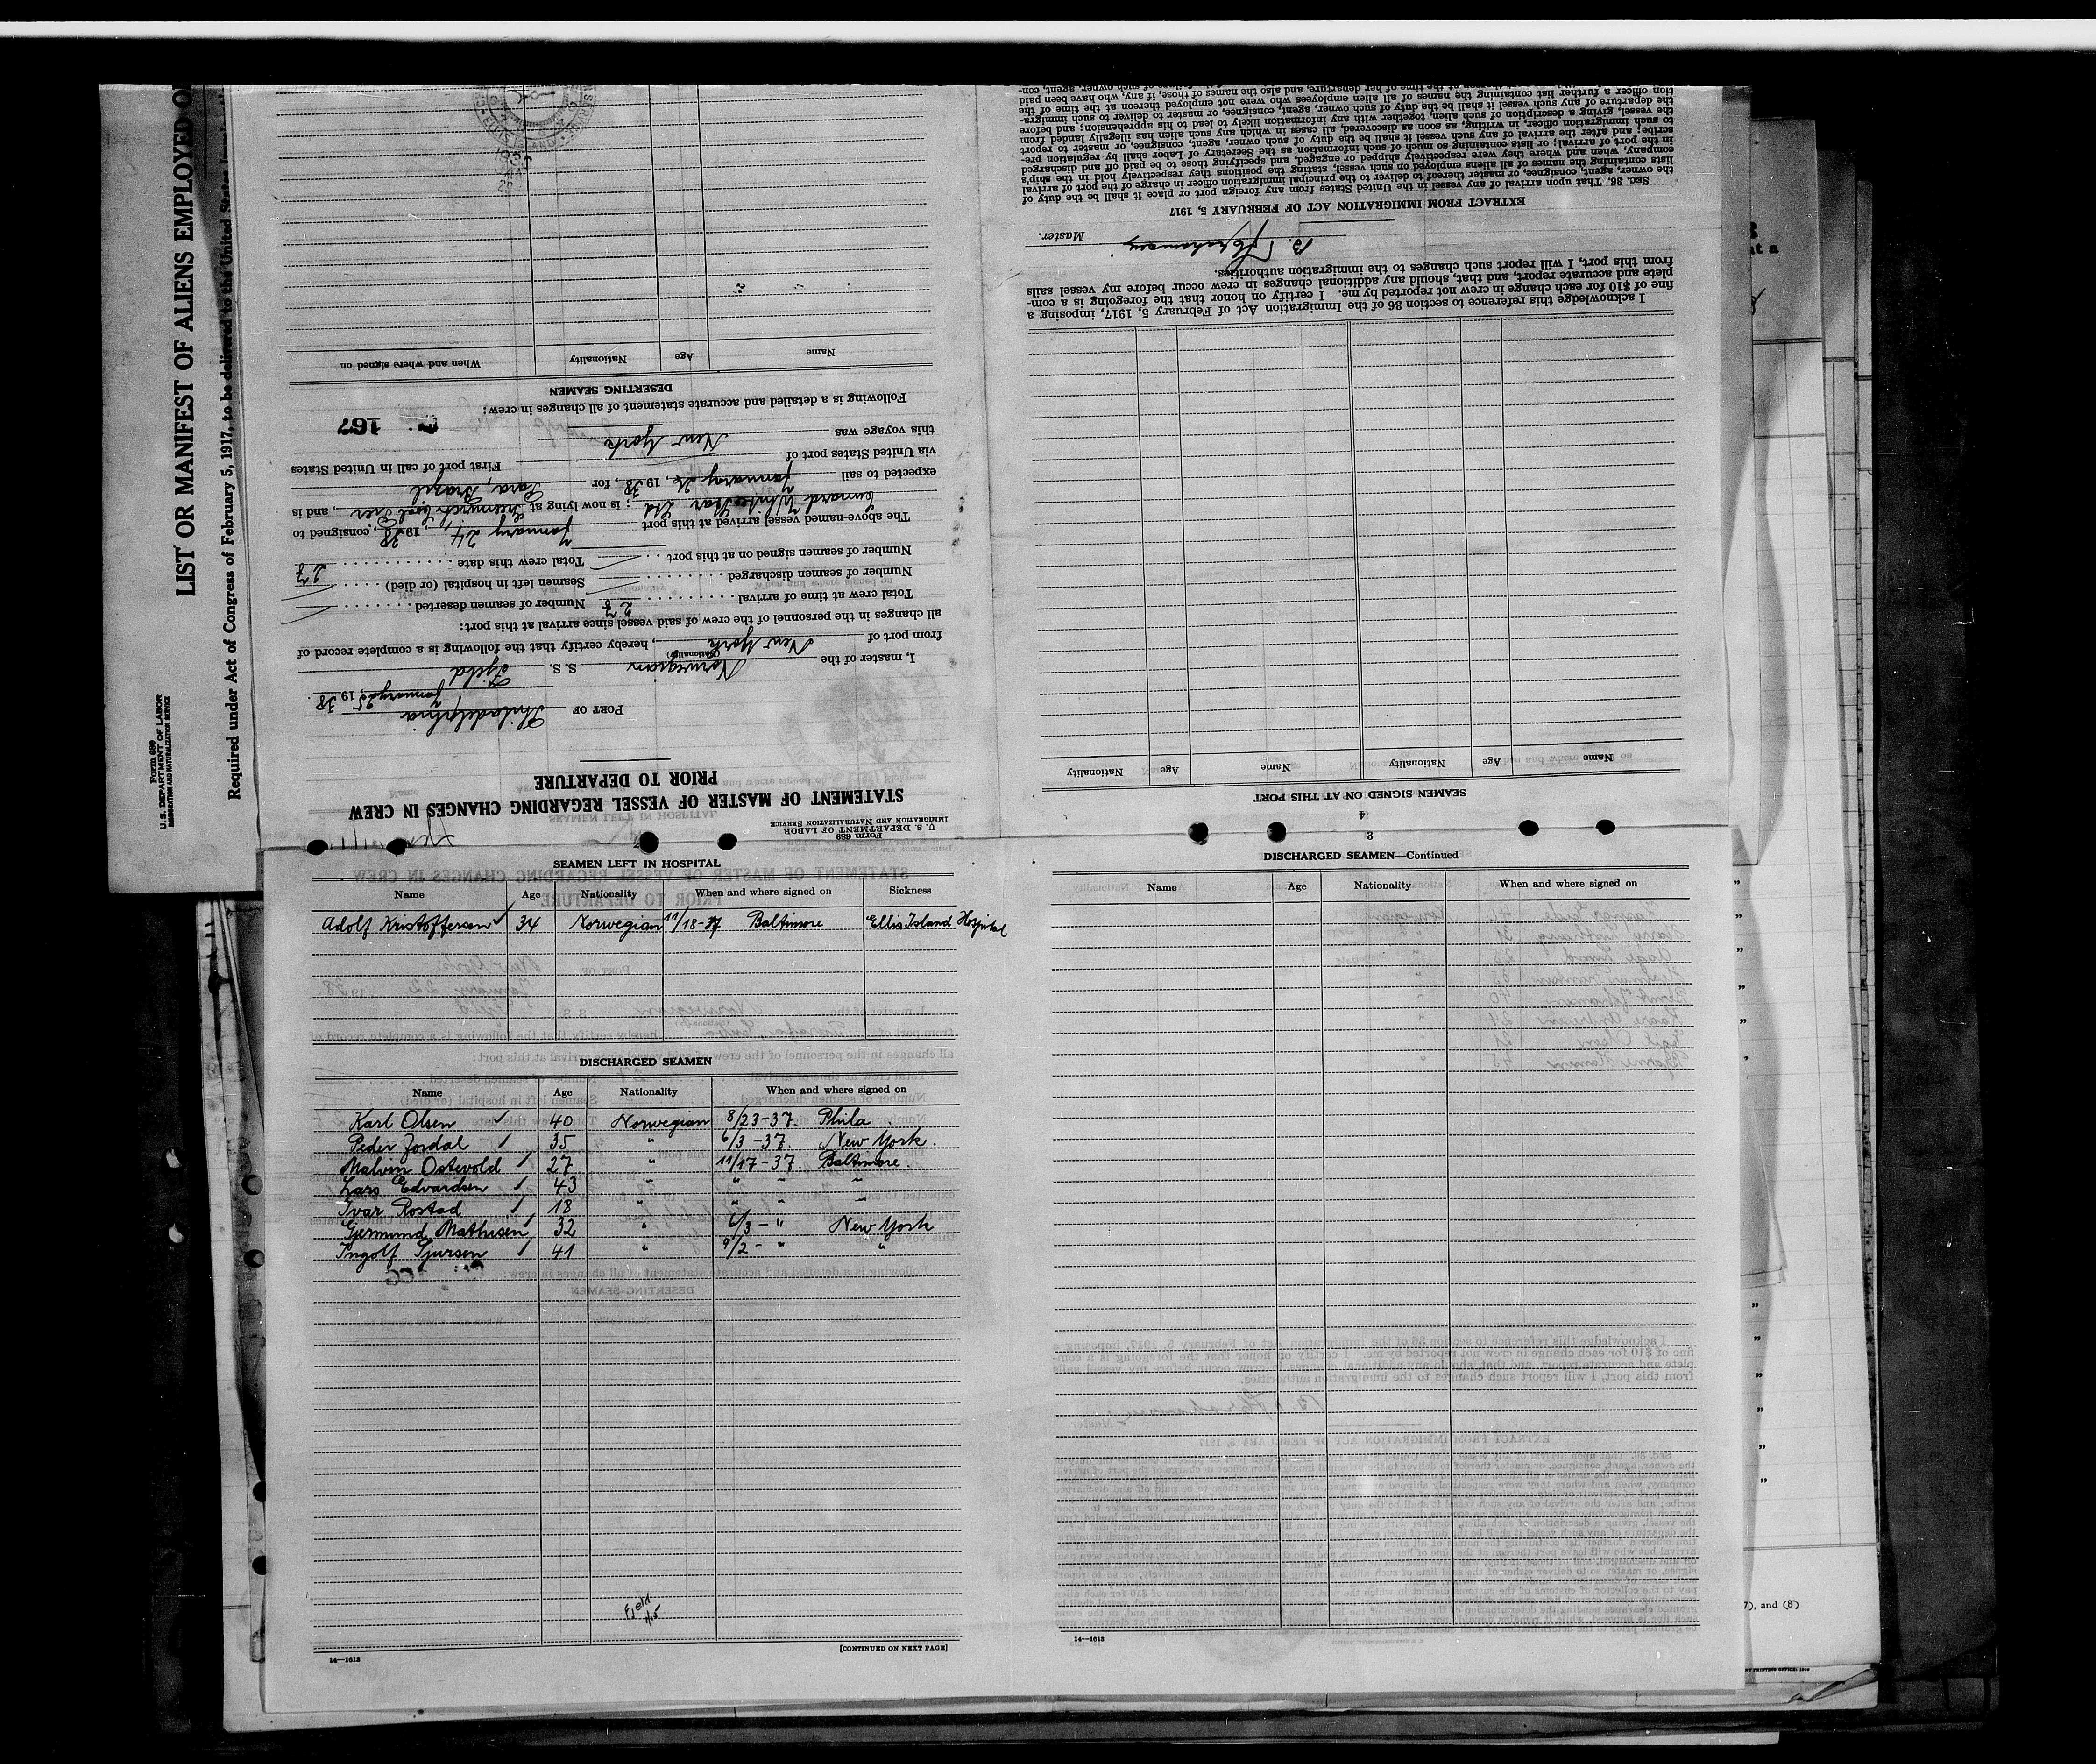 LIST OR MANIFEST OF ALIENS EMPLOYED O
Required under Act of Congress of February 5, 1917, to be delivered to the United States
Form 680
U. S. DEPARTMENT OF LABOR
IMMIGRATION AND NATURALIZATION SERVICE
Form 689
U. S. DEPARTMENT OF LABOR
IMMIGRATION AND NATURALIZATION SERVICE
STATEMENT OF MASTER OF VESSEL REGARDING CHANGES IN CREW
PRIOR TO DEPARTURE
PORT OF Philadelphia
January 25, 1938.
I, master of the Norwegian S. S. Fjeld
(Nationality)
from port of New York, hereby certify that the following is a complete record of
all changes in the personnel of the crew of said vessel since arrival at this port:
Total crew at time of arrival 27 Number of seamen deserted
Number of seamen discharged Seamen left in hospital (or died)
Number of seamen signed on at this port Total crew this date 27
The above-named vessel arrived at this port January 24, 1938, consigned to
Cunard White Star Ltd; is now lying at, and is
expected to sail January 26, 1938, for Para, Brazil
via United States port of First port of call in United States
this voyage was New York
167
Following is a detailed and accurate statement of all changes in crew:
DESERTING SEAMEN
Name Age Nationality When and where signed on
4
SEAMEN SIGNED ON AT THIS PORT
Name Age Nationality Name Age Nationality
I acknowledge this reference to section 36 of the Immigration Act of February 5, 1917, imposing a
fine of $10 for each change in crew not reported by me. I certify on honor that the foregoing is a com-
plete and accurate report, and that, should any additional changes in crew occur before my vessel sails
from this port, I will report such changes to the immigration authorities.
Master.
EXTRACT FROM IMMIGRATION ACT OF FEBRUARY 5, 1917
SEC. 36. That upon arrival of any vessel in the United States from any foreign port or place it shall be the duty of
the owner, agent, consignee, or master thereof to deliver to the principal immigration officer in charge of the port of arrival
lists containing the names of all aliens employed on such vessel, stating the positions they respectively hold in the ship's
company, when and where they were respectively shipped or engaged, and specifying those to be paid off and discharged
in the port of arrival; or lists containing so much of such information as the Secretary of Labor shall by regulation pre-
scribe; and after the arrival of any such vessel it shall be the duty of such owner, agent, consignee, or master to report
to such immigration officer, in writing, as soon as discovered, all cases in which any such alien has illegally landed from
the vessel, giving a description of such alien, together with any information likely to lead to his apprehension; and before
the departure of any such vessel it shall be the duty of such owner, agent, consignee, or master to deliver to such immigra-
tion officer a further list containing the names of all alien employees who were not employed thereon at the time of the
SEAMEN LEFT IN HOSPITAL
Name Age Nationality When and where signed on Sickness
Adolf Kristoffersen 34 Norwegian 11/18-37 Baltimore Ellis Island Hospital
DISCHARGED SEAMEN
Name Age Nationality When and where signed on
Karl Olsen 40 Norwegian 8/23-37. Phila
Peder Jordal 35 " 6/3-37. New York.
Malvin Ostevold 27 " 11/17-37. Baltimore.
Lars Edvardsen 43 " " " "
Ivar Rostad 18 " " " "
Gjermund Mathisen 32 " 6/3-" New York
Ingolf Sjursen 41 " 9/2-" "
Fjeld
1/15
[CONTINUED ON NEXT PAGE]
14—1613
3
DISCHARGED SEAMEN—Continued
Name Age Nationality When and where signed on
14—1613
7), and (8)